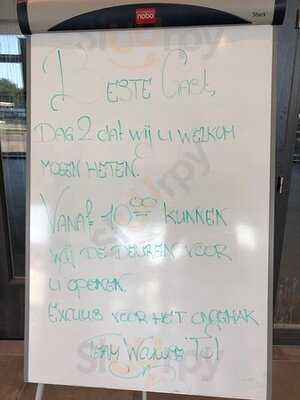 nobo
Shark
BESTE GAST,
DAG 2 dat wij u WELKOM
MOGEN HETEN.
VANAF 10⁰⁰ KUNNEN
WIJ DE DEUREN VOOR
U OPENEN.
EXCUUS VOOR HET ONGEMAK
TEAM